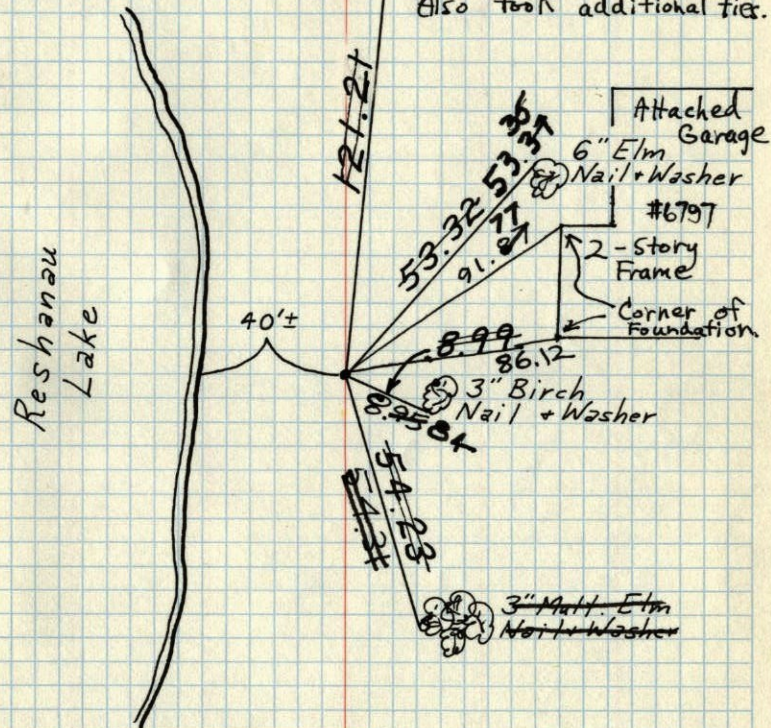 Also took additional ties.
121.21
Attached
Garage
53.32
53.37
6" Elm
Nail + Washer
#6797
91.8
77
2-Story
Frame
Corner of
Foundation.
Reshanau
Lake
40'±
8.99
86.12
3" Birch
Nail + Washer
54.23
54.31
3" Mult. Elm
Nail & Washer